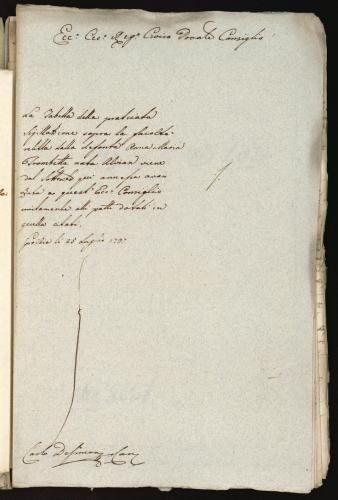 Ecc.º Ces.º Reg.º Civico Prov.le Consiglio
La Tabella della praticata
Sigillazione sopra la facoltà
relitta dalla defonta Anna Maria
Trombetta nata Alvian viene
dal Sotto qui annessa avan
zata a quest' Ecc.º Consiglio
unitamente alli patti dotali in
quella citati.
Gorizia li 28 Luglio 179
Carlo Desimon Canc